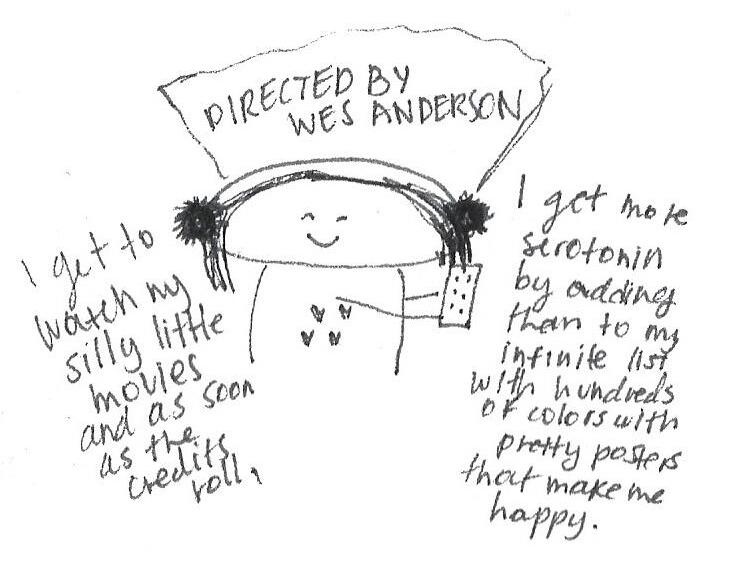 DIRECTED BY
WES ANDERSON
I get to
watch my
silly little
movies
and as soon
as the
credits
roll,
I get more
serotonin
by adding
them to my
infinite list
with hundreds
of colors with
pretty posters
that make me
happy.